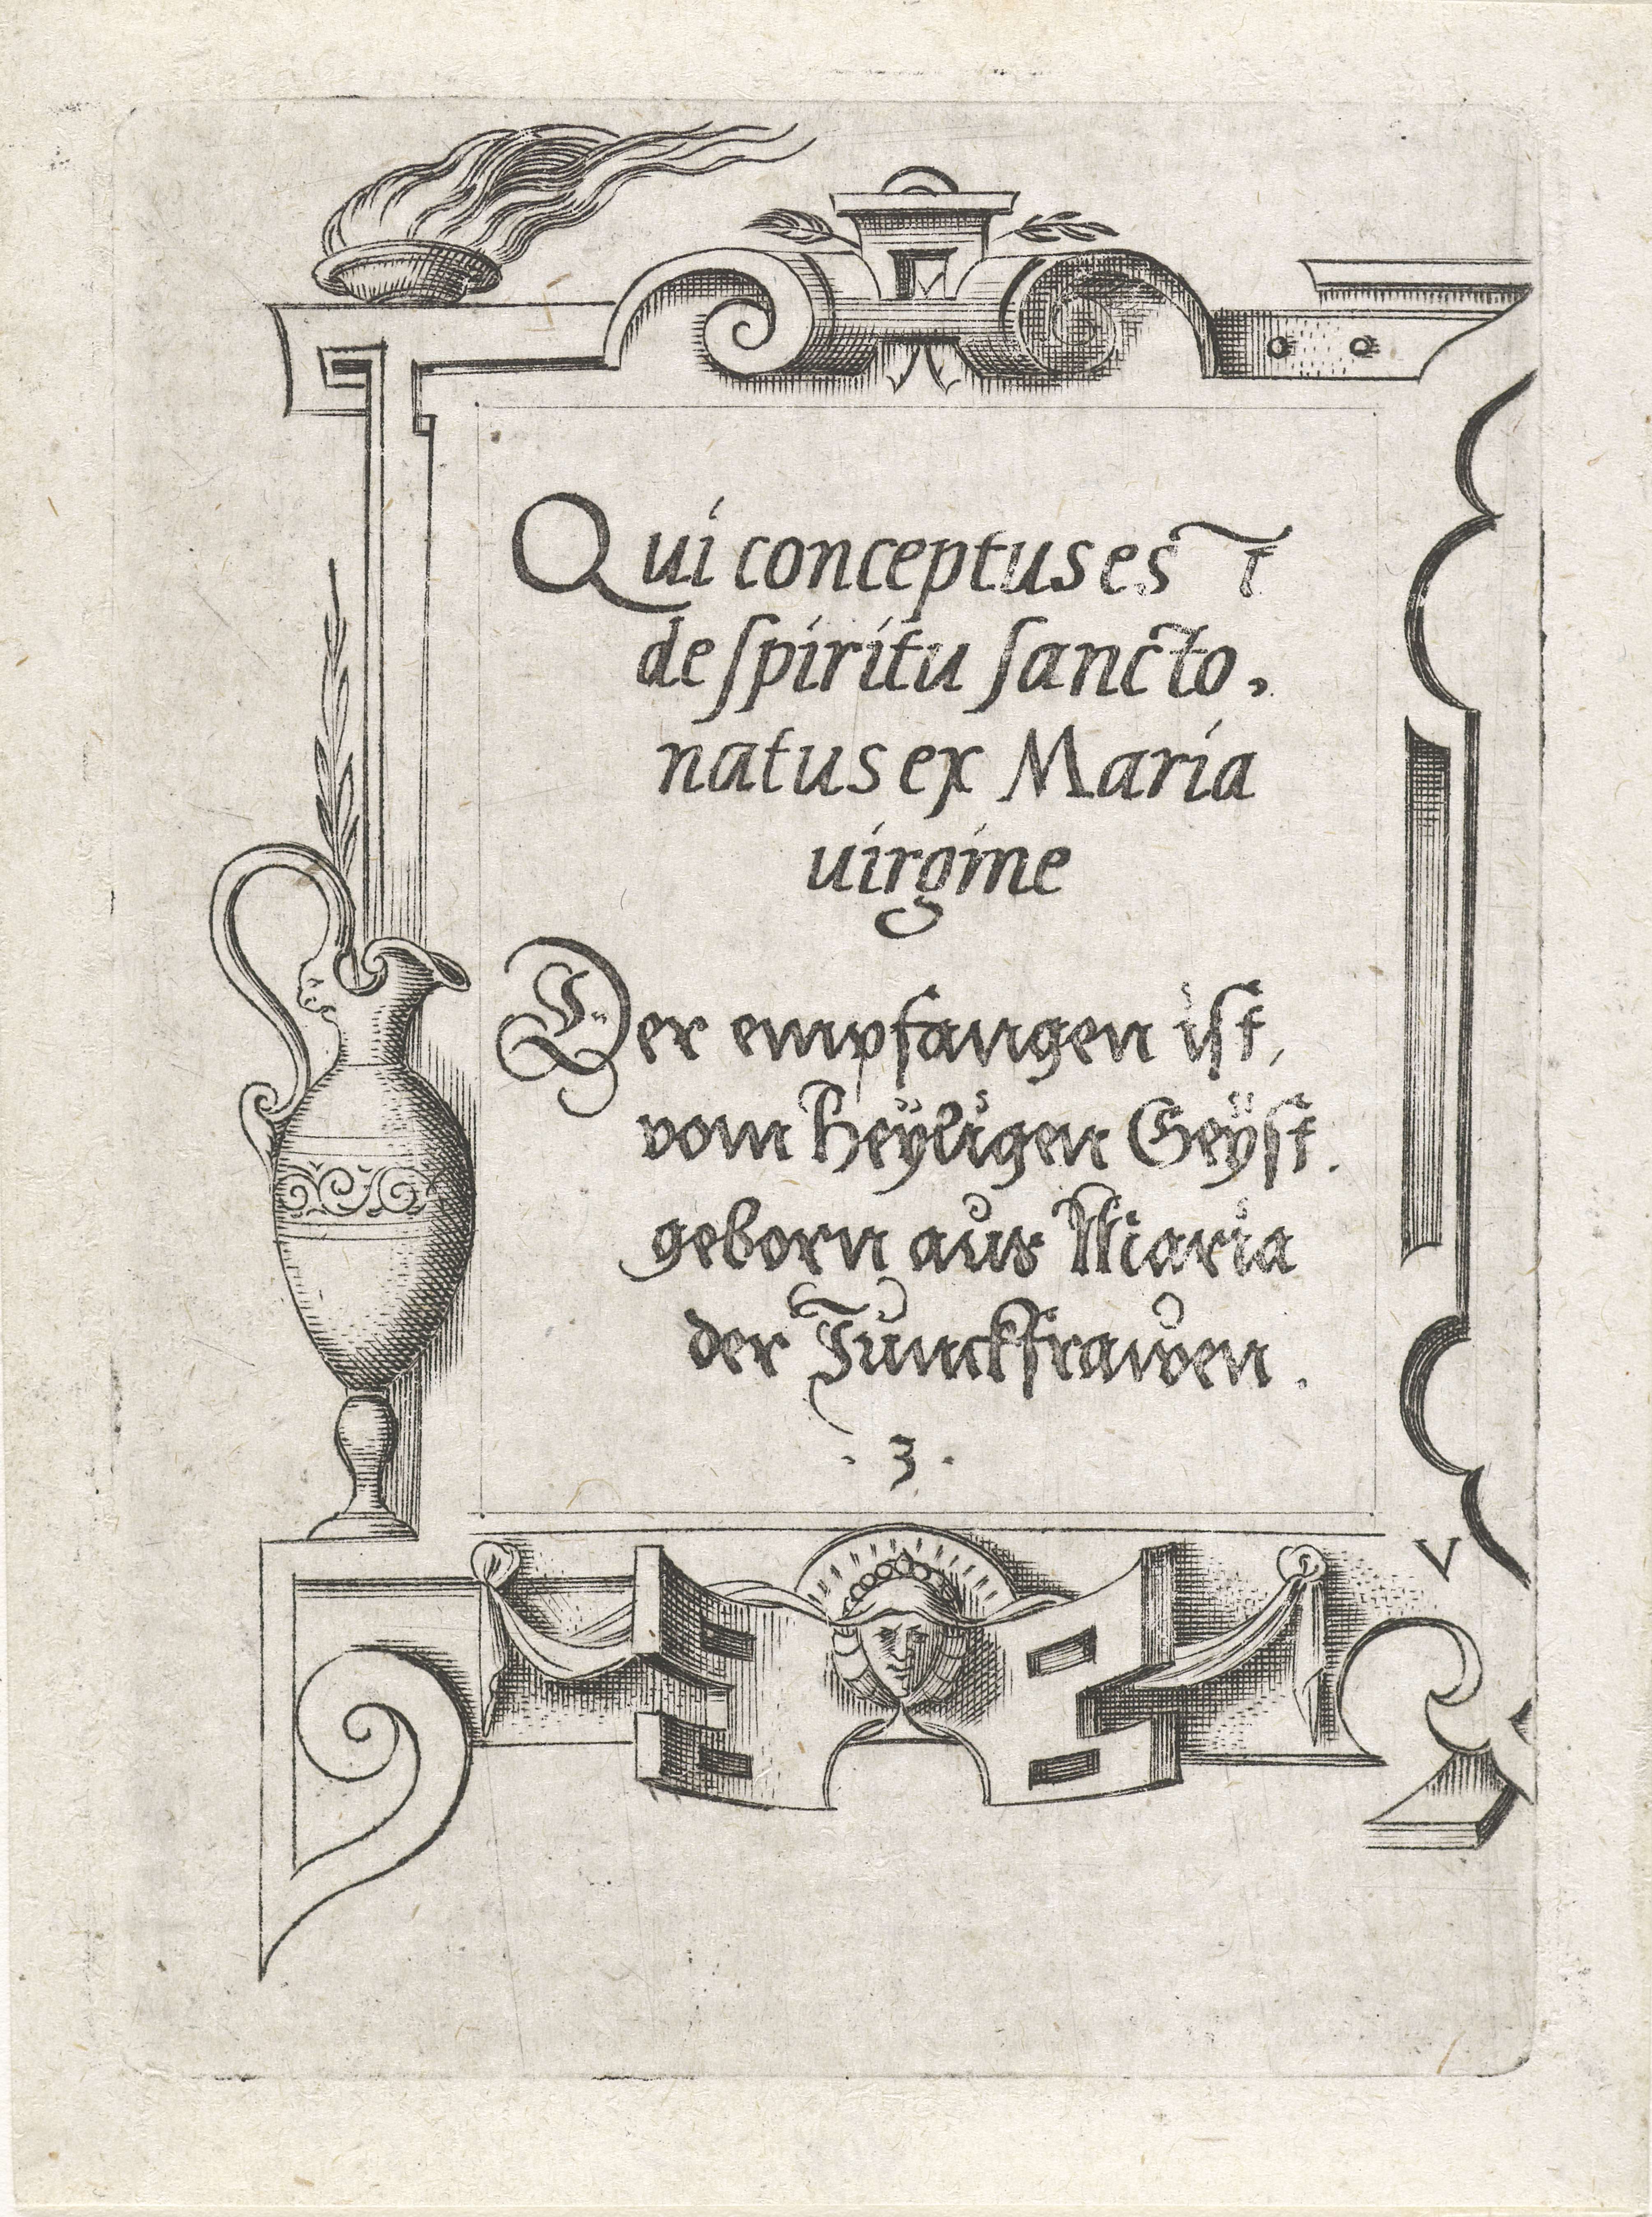 Qui conceptus es t
de ſpiritu ſancto,
natus ex Maria
uirgine
Der empfangen ist,
vom heÿligen Geÿst.
geborn aus Maria
der Junckfrawen.
. 3 .
V